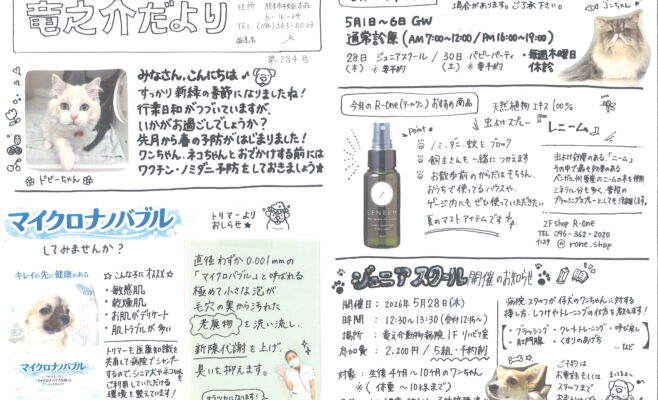 竜之介だより
住所
6-16-14
TEL (096) 363-0033
第284号
みなさん、こんにちは
すっかり新緑の季節になりましたね!
行楽日和がつづいていますが、
いかがお過ごしでしょうか?
先月から春の予防がはじまりました!
ワンちゃん、ネコちゃんとおでかけする前には
ワクチン・ノミダニ予防をしておきましょう
ドビーちゃん
マイクロナノバブル
してみませんか?
トリマーより
おしらせ
キレイの先に健康がある
マイクロナノバブル
こんな子にオススメ
・敏感肌
・乾燥肌
・お肌がデリケート
・肌トラブルが多い
トリマーも医療知識を
共有して病院でシャンプー
するので、シニア犬やネコちゃん
も利用していただける
環境を整えています!
直径わずか0.001mmの
「マイクロバブル」と呼ばれる
極めて小さな泡が
毛穴の奥から汚れた
老廃物を洗い流し、
新陳代謝を上げ
臭いを抑えます。
場合があります。ご了承下さい。
5月1日~6日 GW
通常診療 (AM 7:00~12:00 / PM 16:00~19:00)
28日 ジュニアスクール / 30日 パピーパーティ ・毎週木曜日
(木) ※要予約 (土) ※要予約 休診
今月のR-One(アールワン)おすすめ商品
天然植物エキス100%
虫よけスプレー
『レニーム』
Point
ノミ、ダニ、蚊をブロック
飼主さんも一緒につかえます
お散歩前のからだはもちろん、
おうちで使ってるハウスや、
ゲージ内にもぜひ使っていただきたい
夏のマストアイテムです
虫よけ効果のある「ニーム」
その中で最も効果のある
ミネラル分を多く含有の
ブラッシングスプレーとしても活躍します。
2F shop R-One
TEL 096-362-2020
@rone.shop
ジュニアスクール開催のお知らせ
開催日:2026年5月28日(木)
時間:12:30~13:30(受付12:15~)
場所:竜之介動物病院 1F リハビリ室
参加費:2,200円 / 5組・予約制
対象:生後4ヶ月~10ヶ月のワンちゃん
※(体重~10kgまで)
病院スタッフが仔犬のワンちゃんに対する
接し方、しつけやトレーニングの仕方を教えます!
・ブラッシング ・クレートトレーニング ・呼び戻し
・肛門腺 ・くすりのあげ方
など
ご予約は
お電話もしくは
スタッフまで